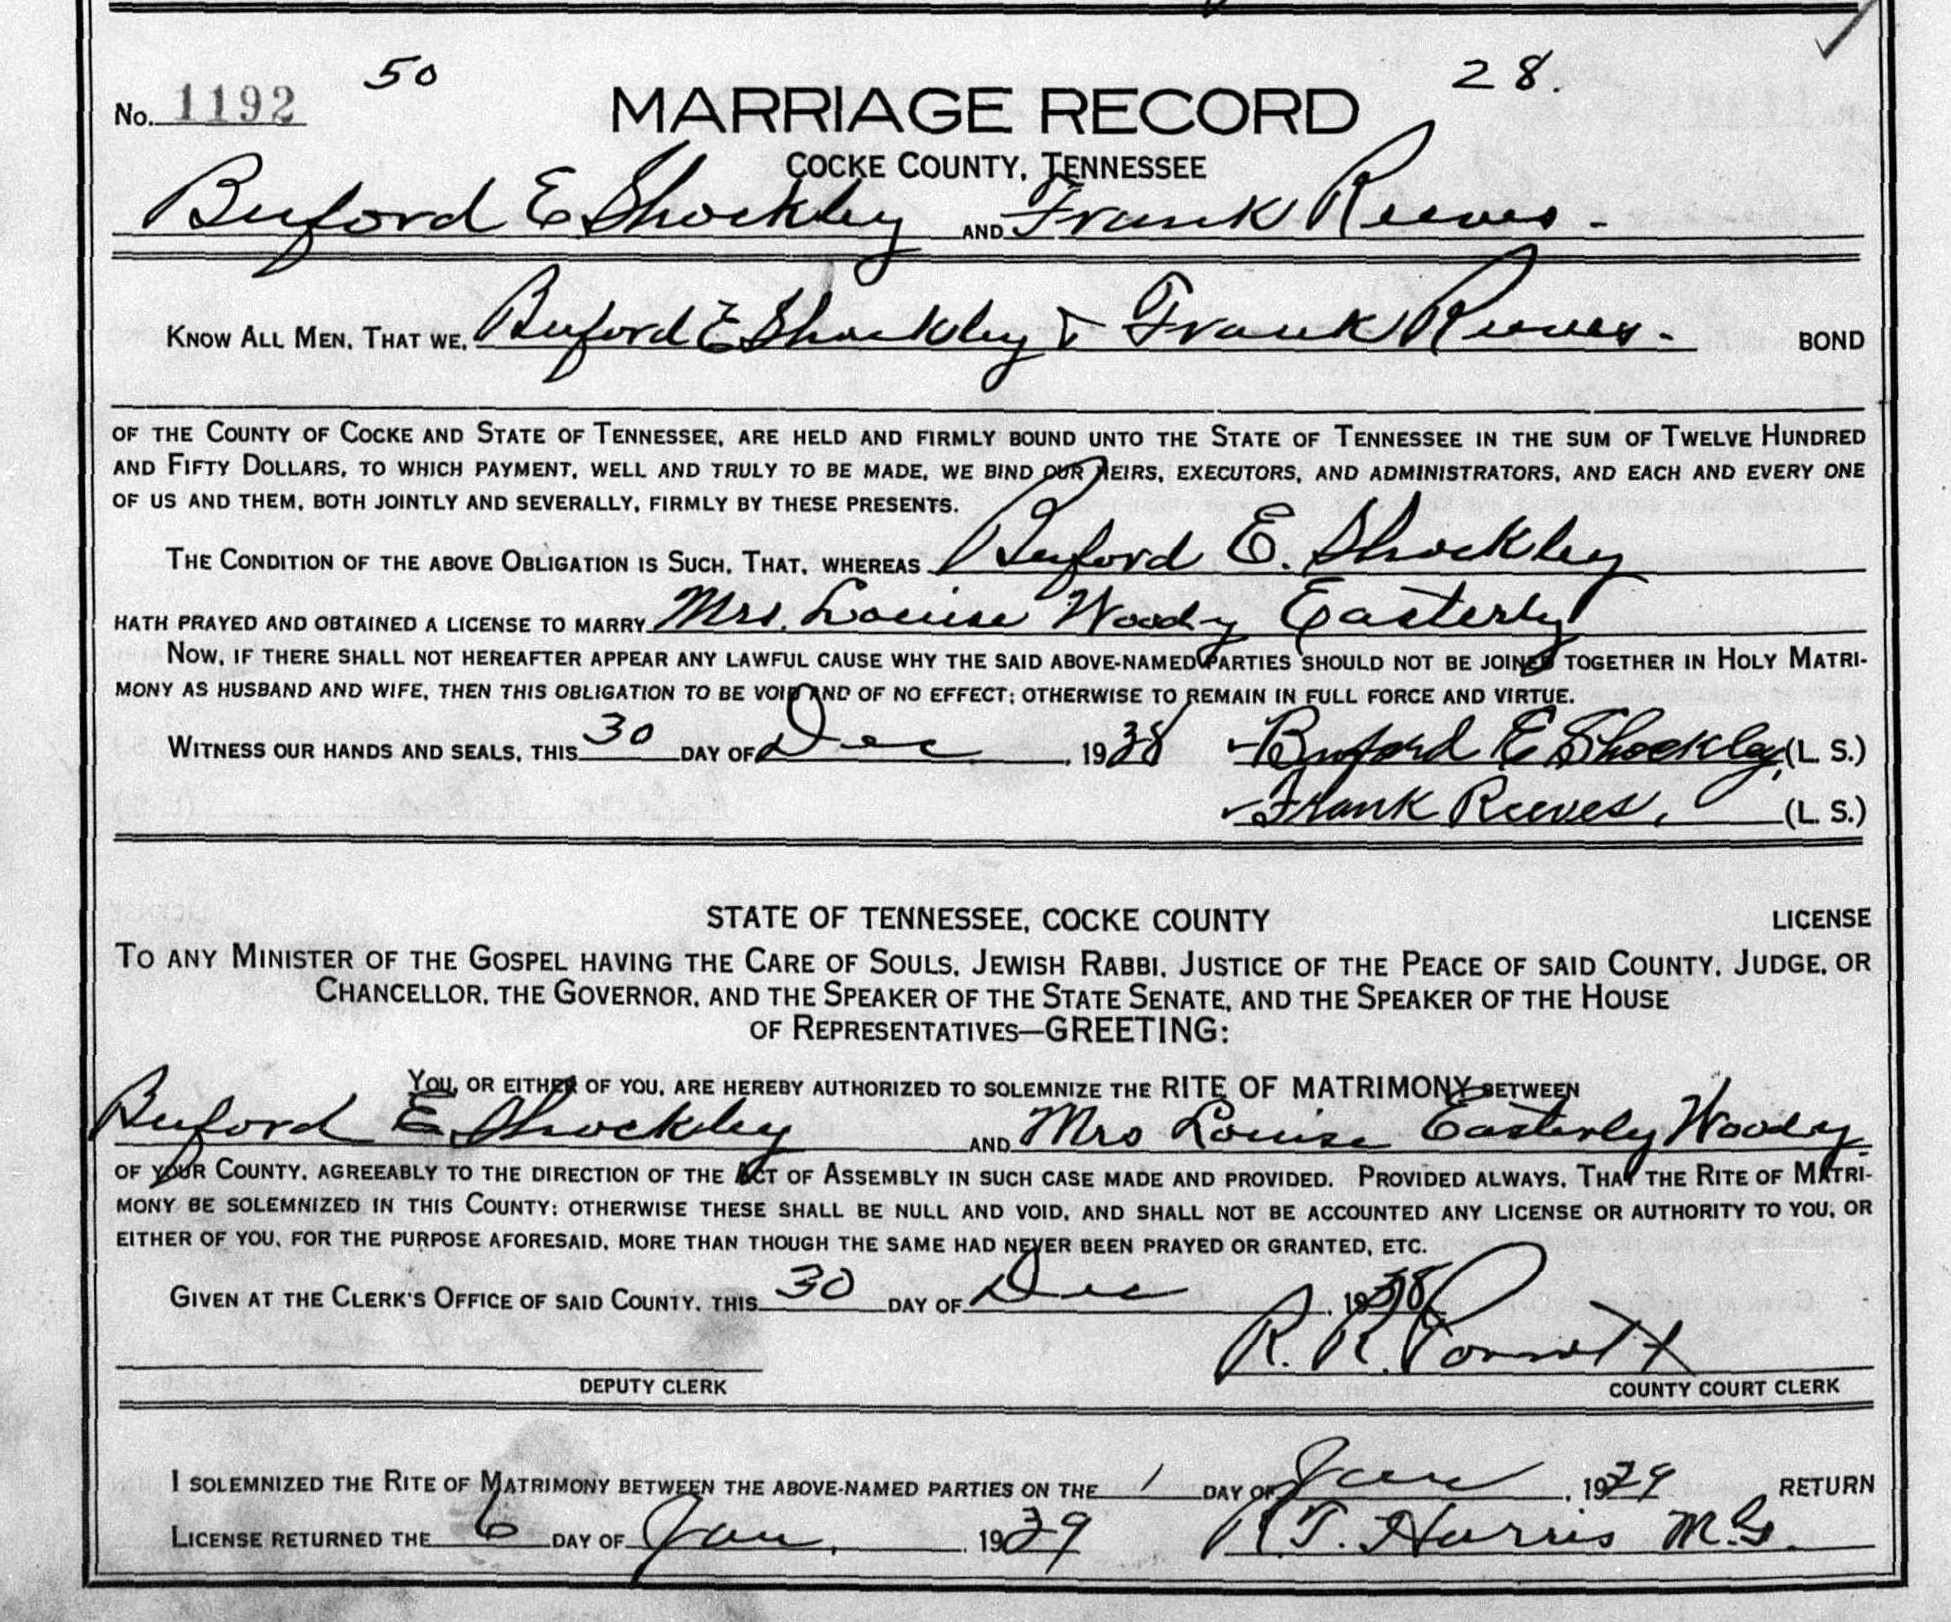 50
28.
No. 1192
MARRIAGE RECORD
COCKE COUNTY, TENNESSEE
Buford E Shockley AND Frank Reeves.
KNOW ALL MEN, THAT WE, Buford E Shockley & Frank Reeves. BOND
OF THE COUNTY OF COCKE AND STATE OF TENNESSEE, ARE HELD AND FIRMLY BOUND UNTO THE STATE OF TENNESSEE IN THE SUM OF TWELVE HUNDRED
AND FIFTY DOLLARS, TO WHICH PAYMENT, WELL AND TRULY TO BE MADE, WE BIND OUR HEIRS, EXECUTORS, AND ADMINISTRATORS, AND EACH AND EVERY ONE
OF US AND THEM, BOTH JOINTLY AND SEVERALLY, FIRMLY BY THESE PRESENTS.
THE CONDITION OF THE ABOVE OBLIGATION IS SUCH, THAT, WHEREAS Buford E. Shockley
HATH PRAYED AND OBTAINED A LICENSE TO MARRY Mrs. Louise Woody Easterly
NOW, IF THERE SHALL NOT HEREAFTER APPEAR ANY LAWFUL CAUSE WHY THE SAID ABOVE-NAMED PARTIES SHOULD NOT BE JOINED TOGETHER IN HOLY MATRI-
MONY AS HUSBAND AND WIFE, THEN THIS OBLIGATION TO BE VOID AND OF NO EFFECT; OTHERWISE TO REMAIN IN FULL FORCE AND VIRTUE.
WITNESS OUR HANDS AND SEALS, THIS 30 DAY OF Dec , 1938 Buford E Shockley (L. S.)
Frank Reeves. (L. S.)
STATE OF TENNESSEE, COCKE COUNTY LICENSE
TO ANY MINISTER OF THE GOSPEL HAVING THE CARE OF SOULS, JEWISH RABBI, JUSTICE OF THE PEACE OF SAID COUNTY, JUDGE, OR
CHANCELLOR, THE GOVERNOR, AND THE SPEAKER OF THE STATE SENATE, AND THE SPEAKER OF THE HOUSE
OF REPRESENTATIVES—GREETING:
YOU, OR EITHER OF YOU, ARE HEREBY AUTHORIZED TO SOLEMNIZE THE RITE OF MATRIMONY BETWEEN
Buford E Shockley AND Mrs Louise Easterly Woody.
OF YOUR COUNTY, AGREEABLY TO THE DIRECTION OF THE ACT OF ASSEMBLY IN SUCH CASE MADE AND PROVIDED. PROVIDED ALWAYS, THAT THE RITE OF MATRI-
MONY BE SOLEMNIZED IN THIS COUNTY; OTHERWISE THESE SHALL BE NULL AND VOID, AND SHALL NOT BE ACCOUNTED ANY LICENSE OR AUTHORITY TO YOU, OR
EITHER OF YOU, FOR THE PURPOSE AFORESAID, MORE THAN THOUGH THE SAME HAD NEVER BEEN PRAYED OR GRANTED, ETC.
GIVEN AT THE CLERK'S OFFICE OF SAID COUNTY, THIS 30 DAY OF Dec , 1938
R. R.
DEPUTY CLERK COUNTY COURT CLERK
I SOLEMNIZED THE RITE OF MATRIMONY BETWEEN THE ABOVE-NAMED PARTIES ON THE 1 DAY OF Jan , 1939 RETURN
LICENSE RETURNED THE 6 DAY OF Jan. , 1939 R.T. Harris M.G.